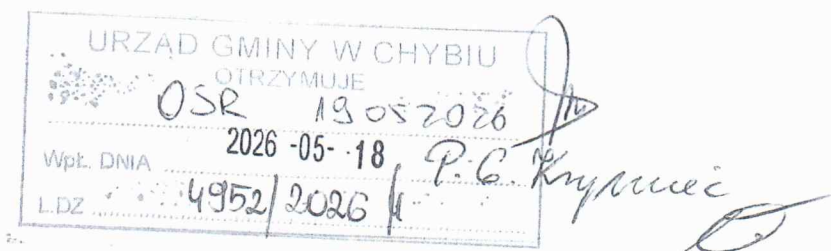 URZĄD GMINY W CHYBIU
OTRZYMUJE
OŚR 19 05 2026
Wpł. DNIA 2026 -05- 18
P. G.
L.DZ 4952/2026